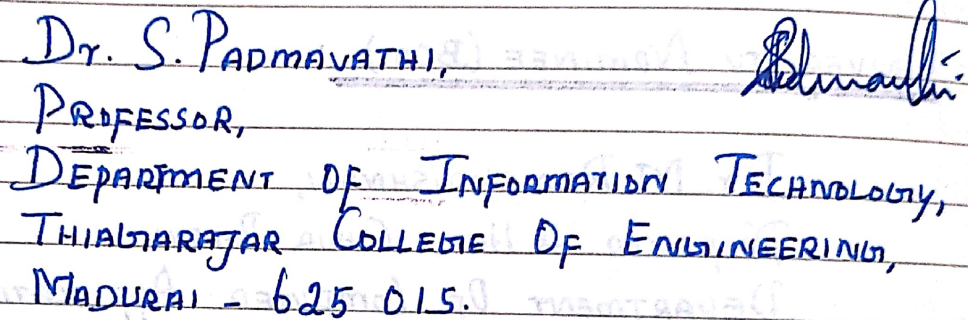 Dr. S. PADMAVATHI,
PROFESSOR,
DEPARTMENT OF INFORMATION TECHNOLOGY,
THIAGARAJAR COLLEGE OF ENGINEERING,
MADURAI - 625 015.